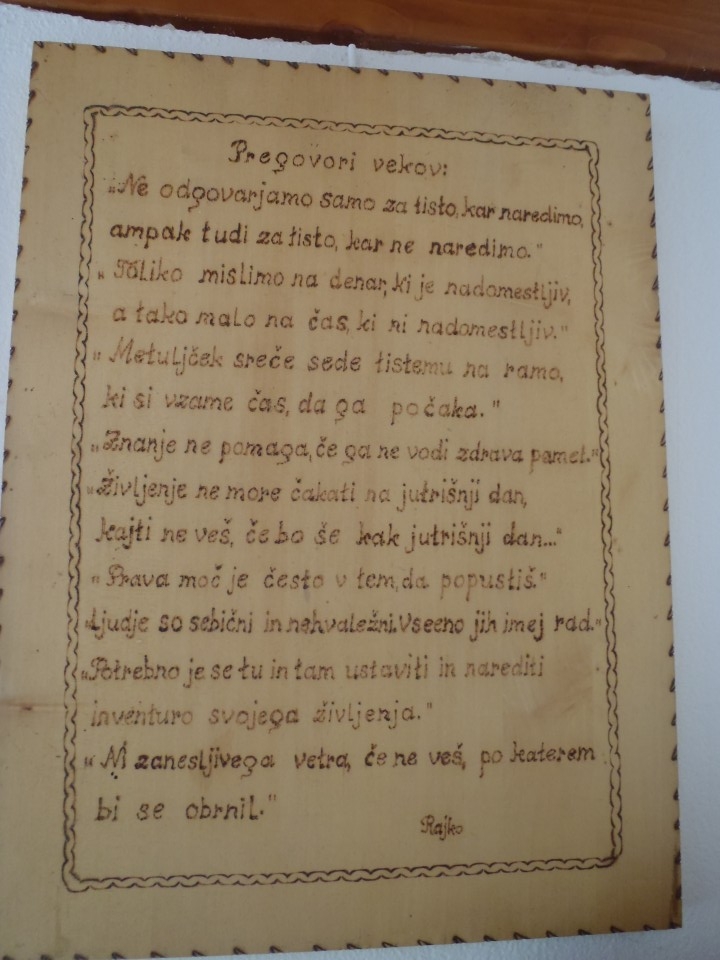 Pregovori vekov:
„Ne odgovarjamo samo za tisto, kar naredimo,
ampak tudi za tisto, kar ne naredimo."
„Toliko mislimo na denar, ki je nadomestljiv,
a tako malo na čas, ki ni nadomestljiv."
„Metuljček sreče sede tistemu na ramo,
ki si vzame čas, da ga počaka."
„Znanje ne pomaga, če ga ne vodi zdrava pamet."
„Življenje ne more čakati na jutrišnji dan,
kajti ne veš, če bo še kak jutrišnji dan..."
„Prava moč je često v tem, da popustiš."
„Ljudje so sebični in nehvaležni. Vseeno jih imej rad."
„Potrebno je se tu in tam ustaviti in narediti
inventuro svojega življenja."
„Ni zanesljivega vetra, če ne veš, po katerem
bi se obrnil."
Rajko